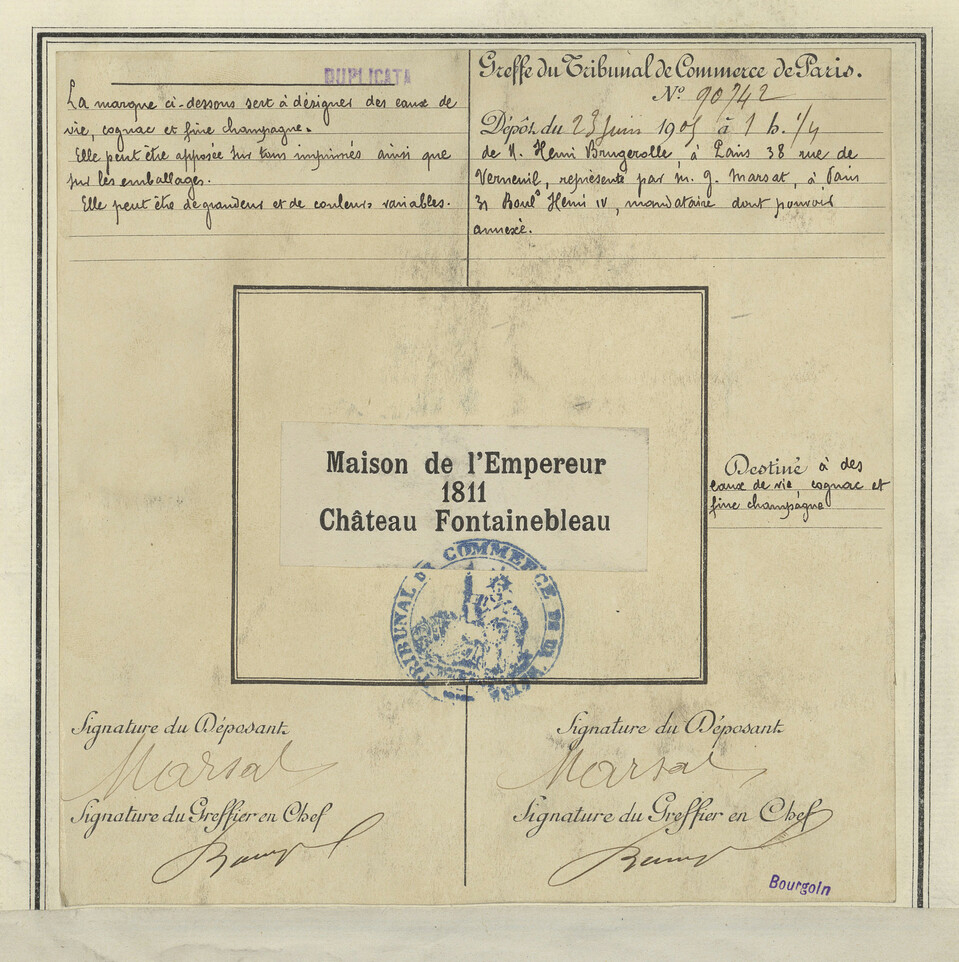 DUPLICATA
La marque ci-dessous sert à désigner des eaux de
vie, cognac et fine champagne.
Elle peut être apposée sur tous imprimés ainsi que
sur les emballages.
Elle peut être de grandeur et de couleurs variables.
Greffe du Tribunal de Commerce de Paris.
N° 90742
Dépôt du 23 Juin 1905 à 1 h. 1/4
de M. Henri Brugerolle, à Paris 38 rue de
Verneuil, représenté par M. J. Marsat, à Paris
31 Boul^d Henri IV, mandataire dont pouvoir
annexé.
Maison de l'Empereur
1811
Château Fontainebleau
Destiné à des
eaux de vie, cognac et
fine champagne
TRIBUNAL DE COMMERCE DE
Signature du Déposant
Marsat
Signature du Greffier en Chef
Signature du Déposant
Marsat
Signature du Greffier en Chef
Bourgoin